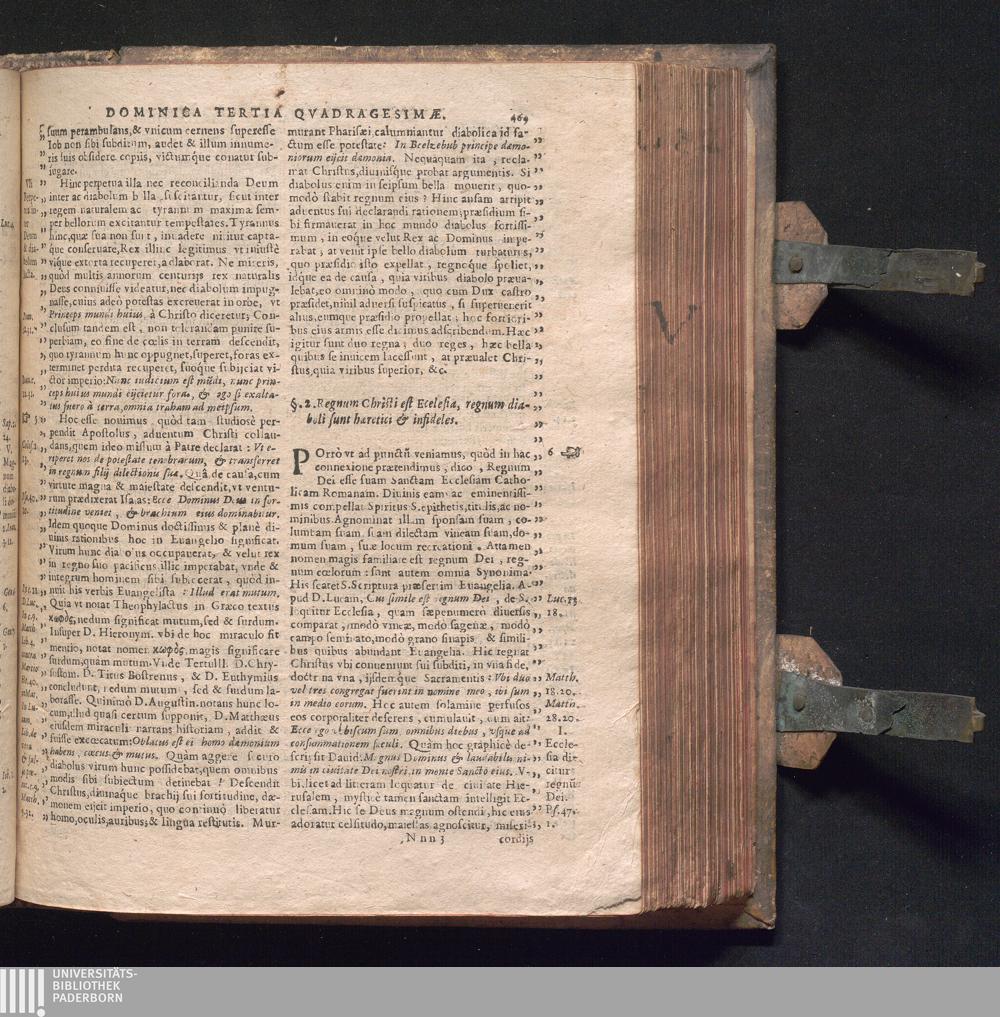 DOMINICA TERTIA QVADRAGESIMÆ.
469
suum perambulans, & vnicum cernens superesse
Iob non sibi subditum, audet & illum innume-
ris suis obsidere copiis, victumque conatur sub-
iugare.
Hinc perpetua illa nec reconcilianda Deum
inter ac diabolum bella suscitantur, sicut inter
regem naturalem ac tyrannum maximæ sem-
per bellorum excitantur tempestates. Tyrannus
hinc, quæ sua non sunt, inuadere nititur capta-
que conseruare, Rex illinc legitimus vt iniustè
visque extorta recuperet, adlaborat. Ne miseris,
quòd multis annorum centurijs rex naturalis
Deus conniuisse videatur, nec diabolum impug-
nasse, cuius adeò potestas excreuerat in orbe, vt
Princeps mundi huius, à Christo diceretur; Con-
clusum tandem est, non tolerandam punire su-
perbiam, eo fine de cœlis in terram descendit,
quo tyrannum hunc oppugnet, superet, foras ex-
terminet perdita recuperet, suoque subijciat vi-
ctor imperio: Nunc iudicium est mūdi, nunc prin-
ceps huius mundi eijcietur foras, & ego si exalta-
tus fuero à terra, omnia traham ad meipsum.
Hoc esse nouimus quòd tam studiosè per-
pendit Apostolus, aduentum Christi collau-
dans, quem ideo missum à Patre declarat: Vt e-
riperet nos de potestate tenebrarum, & transferret
in regnum filij dilectionis suæ. Quâ de causa, cum
virtute magna & maiestate descendit, vt ventu-
rum prædixerat Isaias: Ecce Dominus Deus in for-
titudine veniet, & brachium eius dominabitur.
Idem quoque Dominus doctissimis & planè di-
uinis rationibus hoc in Euangelio significat.
Virum hunc diabolus occupauerat, & velut rex
in regno suo pacificus illic imperabat, vnde &
integrum hominem sibi subiecerat, quòd in-
nuit his verbis Euangelista: Illud erat mutum.
Quia vt notat Theophylactus in Græco textus
κωφὸς, nedum significat mutum, sed & surdum.
Insuper D. Hieronym. vbi de hoc miraculo fit
mentio, notat nomen κωφὸς, magis significare
surdum, quàm mutum. Vnde Tertull. D. Chry-
sostom. D. Titus Bostrenus, & D. Euthymius
concludunt, nedum mutum, sed & surdum la-
borasse. Quinimò D. Augustin. notans hunc lo-
cum, illud quasi certum supponit, D. Matthæus
eiusdem miraculi narrans historiam, addit &
fuisse excœcatum: Oblatus est ei homo dæmonium
habens, cœcus & mutus. Quàm aggere securo
diabolus virum hunc possidebat, quem omnibus
modis sibi subiectum detinebat? Descendit
Christus, diuinaque brachij sui fortitudine, dæ-
monem eijcit imperio, quo continuò liberatur
homo, oculis, auribus, & lingua restitutis. Mur-
murant Pharisæi, calumniantur diabolica id fa-
ctum esse potestate: In Beelzebub principe dæmo-
niorum eijcit dæmonia. Nequaquam ita, recla-
mat Christus, diuinisque probat argumentis. Si
diabolus enim in seipsum bella mouerit, quo-
modò stabit regnum eius? Hinc ansam arripit
aduentus sui declarandi rationem; præsidium si-
bi firmauerat in hoc mundo diabolus fortissi-
mum, in eoque velut Rex ac Dominus impe-
rabat, at venit ipse bello diabolum turbaturus,
quo præsidio isto expellat, regnoque spoliet,
idque ea de causa, quia viribus diabolo præua-
lebat, eo omninò modo, quo cum Dux castro
præsidet, nihil aduersi suspicatus, si superuenerit
alius, eumque præsidio propellat; hoc fortiori-
bus eius armis esse dicimus adscribendum. Hæc
igitur sunt duo regna; duo reges, hæc bella
quibus se inuicem lacessunt, at præualet Chri-
stus, quia viribus superior, &c.
§. 2. Regnum Christi est Ecclesia, regnum dia-
boli sunt hæretici & infideles.
POrrò vt ad punctū veniamus, quòd in hac
connexione prætendimus, dico, Regnum
Dei esse suam Sanctam Ecclesiam Catho-
licam Romanam. Diuinis eam ac eminentissi-
mis compellat Spiritus S. epithetis, titulis, ac no-
minibus. Agnominat illam sponsam suam, co-
lumbam suam, suam dilectam vineam suam, do-
mum suam, suæ locum recreationi. Attamen
nomen magis familiare est regnum Dei, reg-
num cœlorum: sunt autem omnia Synonima.
His scatet S. Scriptura præsertim Euangelia. A-
pud D. Lucam, Cui simile est regnum Dei, de S.
loquitur Ecclesia, quam sæpenumerò diuersis
comparat, modò vineæ, modò sagenæ, modò
campo seminato, modò grano sinapis & simili-
bus quibus abundant Euangelia. Hic regnat
Christus vbi conueniunt sui subditi, in vna fide,
doctrina vna, ijsdemque Sacramentis: Vbi duo
vel tres congregati fuerint in nomine meo, ibi sum
in medio eorum. Hoc autem solamine perfusos
eos corporaliter deserens, cumulauit, cum ait:
Ecce ego vobiscum sum omnibus diebus, vsque ad
consummationem sæculi. Quàm hoc graphicè de-
scripsit Dauid: Magnus Dominus & laudabilis ni-
mis in ciuitate Dei nostri, in monte Sancto eius. V-
bi, licet ad litteram loquatur de ciuitate Hie-
rusalem, mysticè tamen sanctam intelligit Ec-
clesiam. Hic se Deus magnum ostendit, hic eius
adoratur celsitudo, maiestas agnoscitur, miseri-
6
Luc. 13.
18.
Matth.
18.20.
Matth.
28.20.
I.
Eccle-
sia di-
citur
regnū
Dei.
Ps. 47.
1.
Nnn 3
cordijs
V
UNIVERSITÄTS-
BIBLIOTHEK
PADERBORN